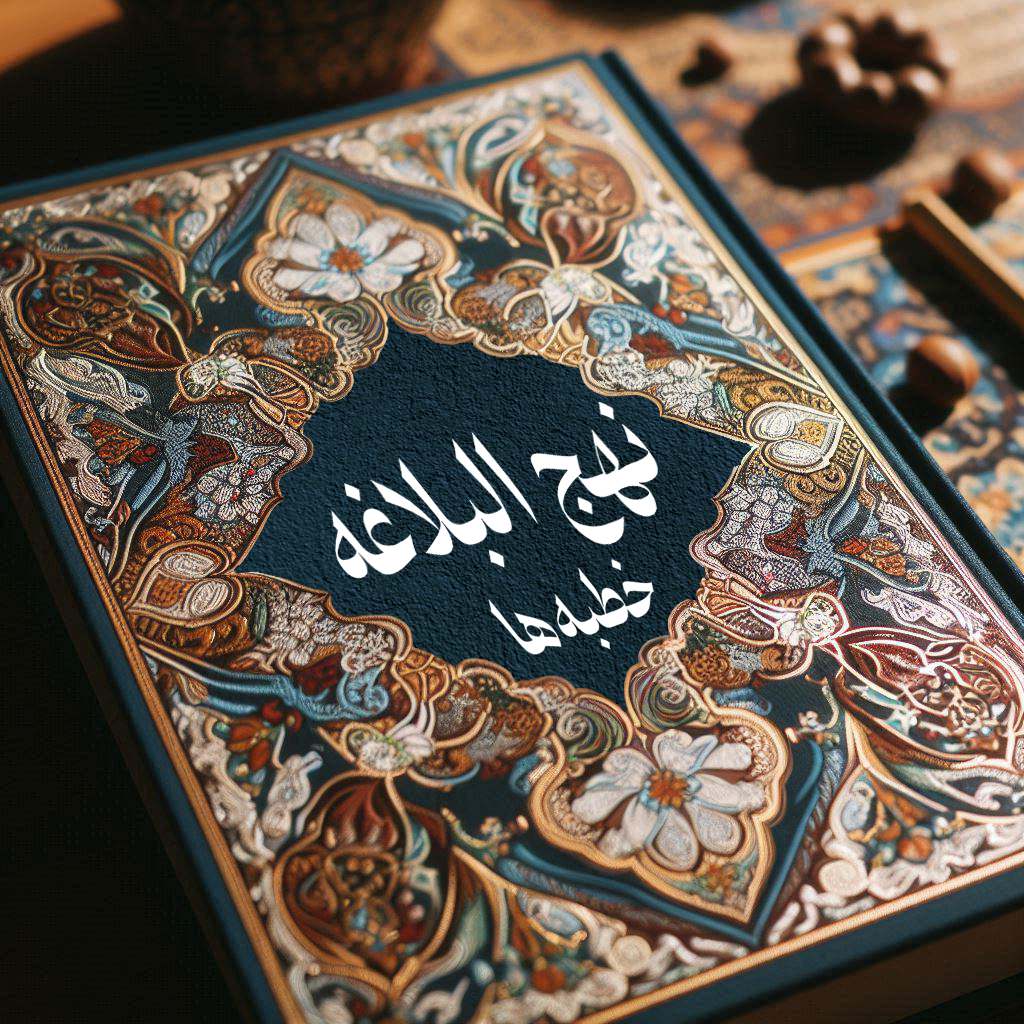 نهج البلاغه
خطبه‌ها